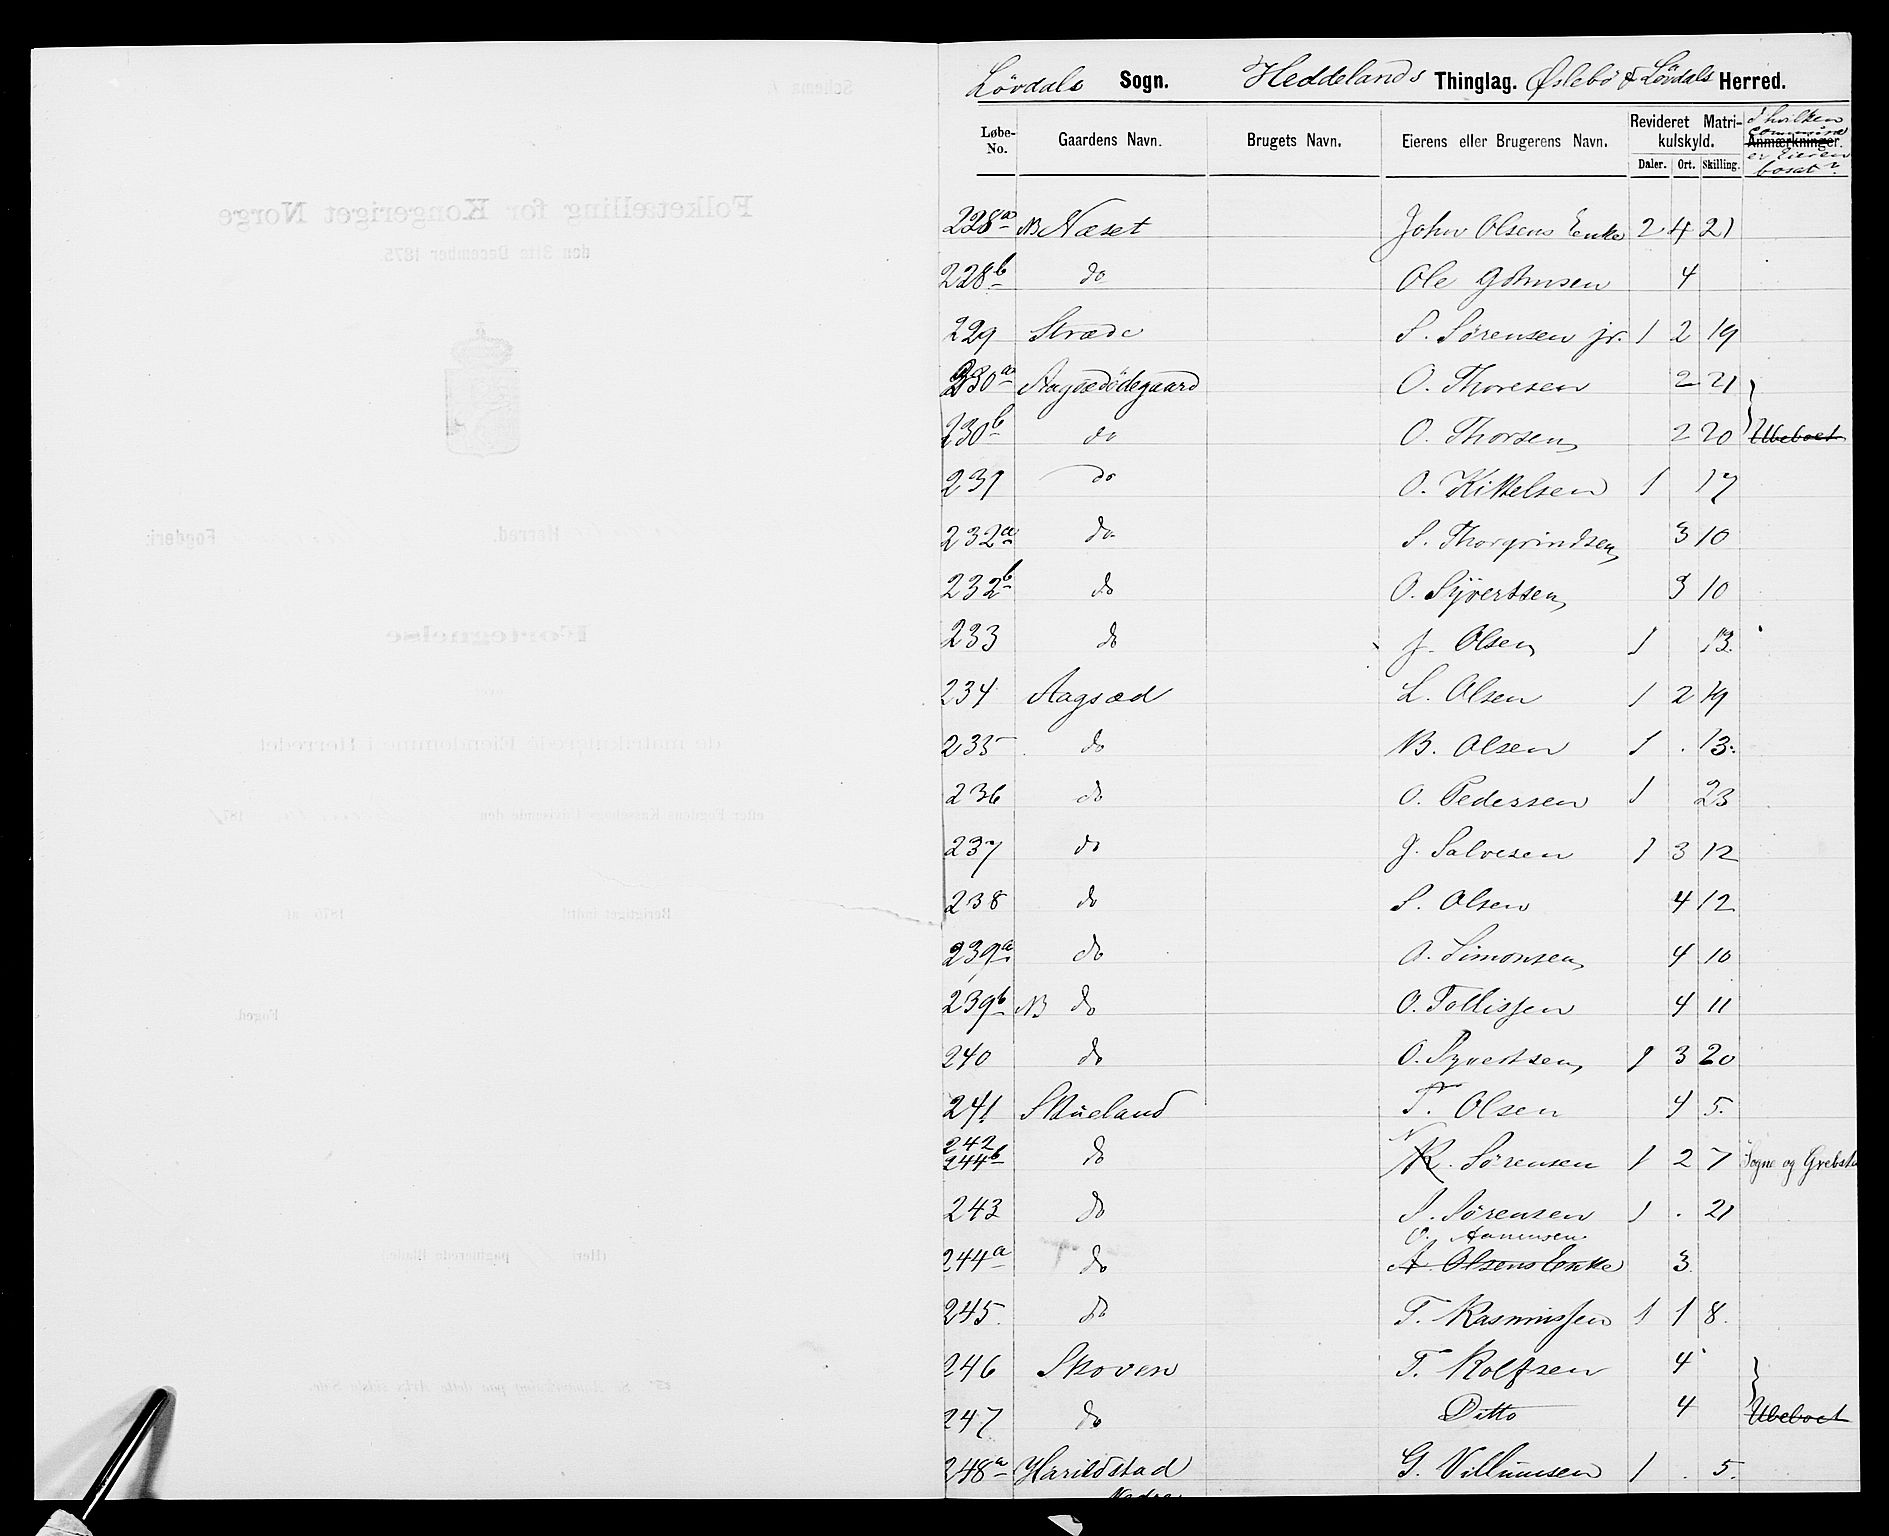 Løvdals Sogn. Heddelands Thinglag. Øslebø & Løvdals Herred.
Løbe-No. Gaardens Navn. Brugets Navn. Eierens eller Brugerens Navn. Revideret Matrikulskyld. Daler. Ort. Skilling. Anmærkninger. I hvilken commune er Eieren bosat?
228a NB Næset John Olsens Enke 2 4 21
228b do Ole Johnsen 4
229 Stræde S. Sørensen jr. 1 2 19
230a Aagsædødegaard O. Thoresen 2 21
230b do O. Thorsen 2 20 Ubeboet
231 do O. Kittelsen 1 17
232a do S. Thorgrindsen 3 10
232b do O. Syvertsen 3 10
233 do J. Olsen 1 13
234 Aagsæd L. Olsen 1 2 19
235 do B. Olsen 1 . 13
236 do O. Pedersen 1 23
237 do J. Salvesen 1 3 12
238 do S. Olsen 4 12
239a do A. Simonsen 4 10
239b NB do O. Tollissen 4 11
240 do O. Syvertsen 1 3 20
241 Skueland T. Olsen 4 5
242
244b do N. Sørensen 1 2 7 Sogne og Grebsta
243 do S. Sørensen 1 . 21
O. Aanensen
244a do A. Olsens Enke 3
245 do T. Rasmussen 1 1 8
246 Skoven T. Rolfsen 4
247 do Ditto 4 Ubeboet
248a Harildstad G. Villumsen 1 . 5
Nedre
Schema
Folketælling for Kongeriget Norge
den 31te December 1875.
Herred. Fogderi:
Fortegnelse
over
de matrikulerede Eiendomme i Herredet
efter Fogdens Kassebogs Udvisende den 187
Berigtiget indtil 1876 af
Foged.
(Heri paginerede Blade)